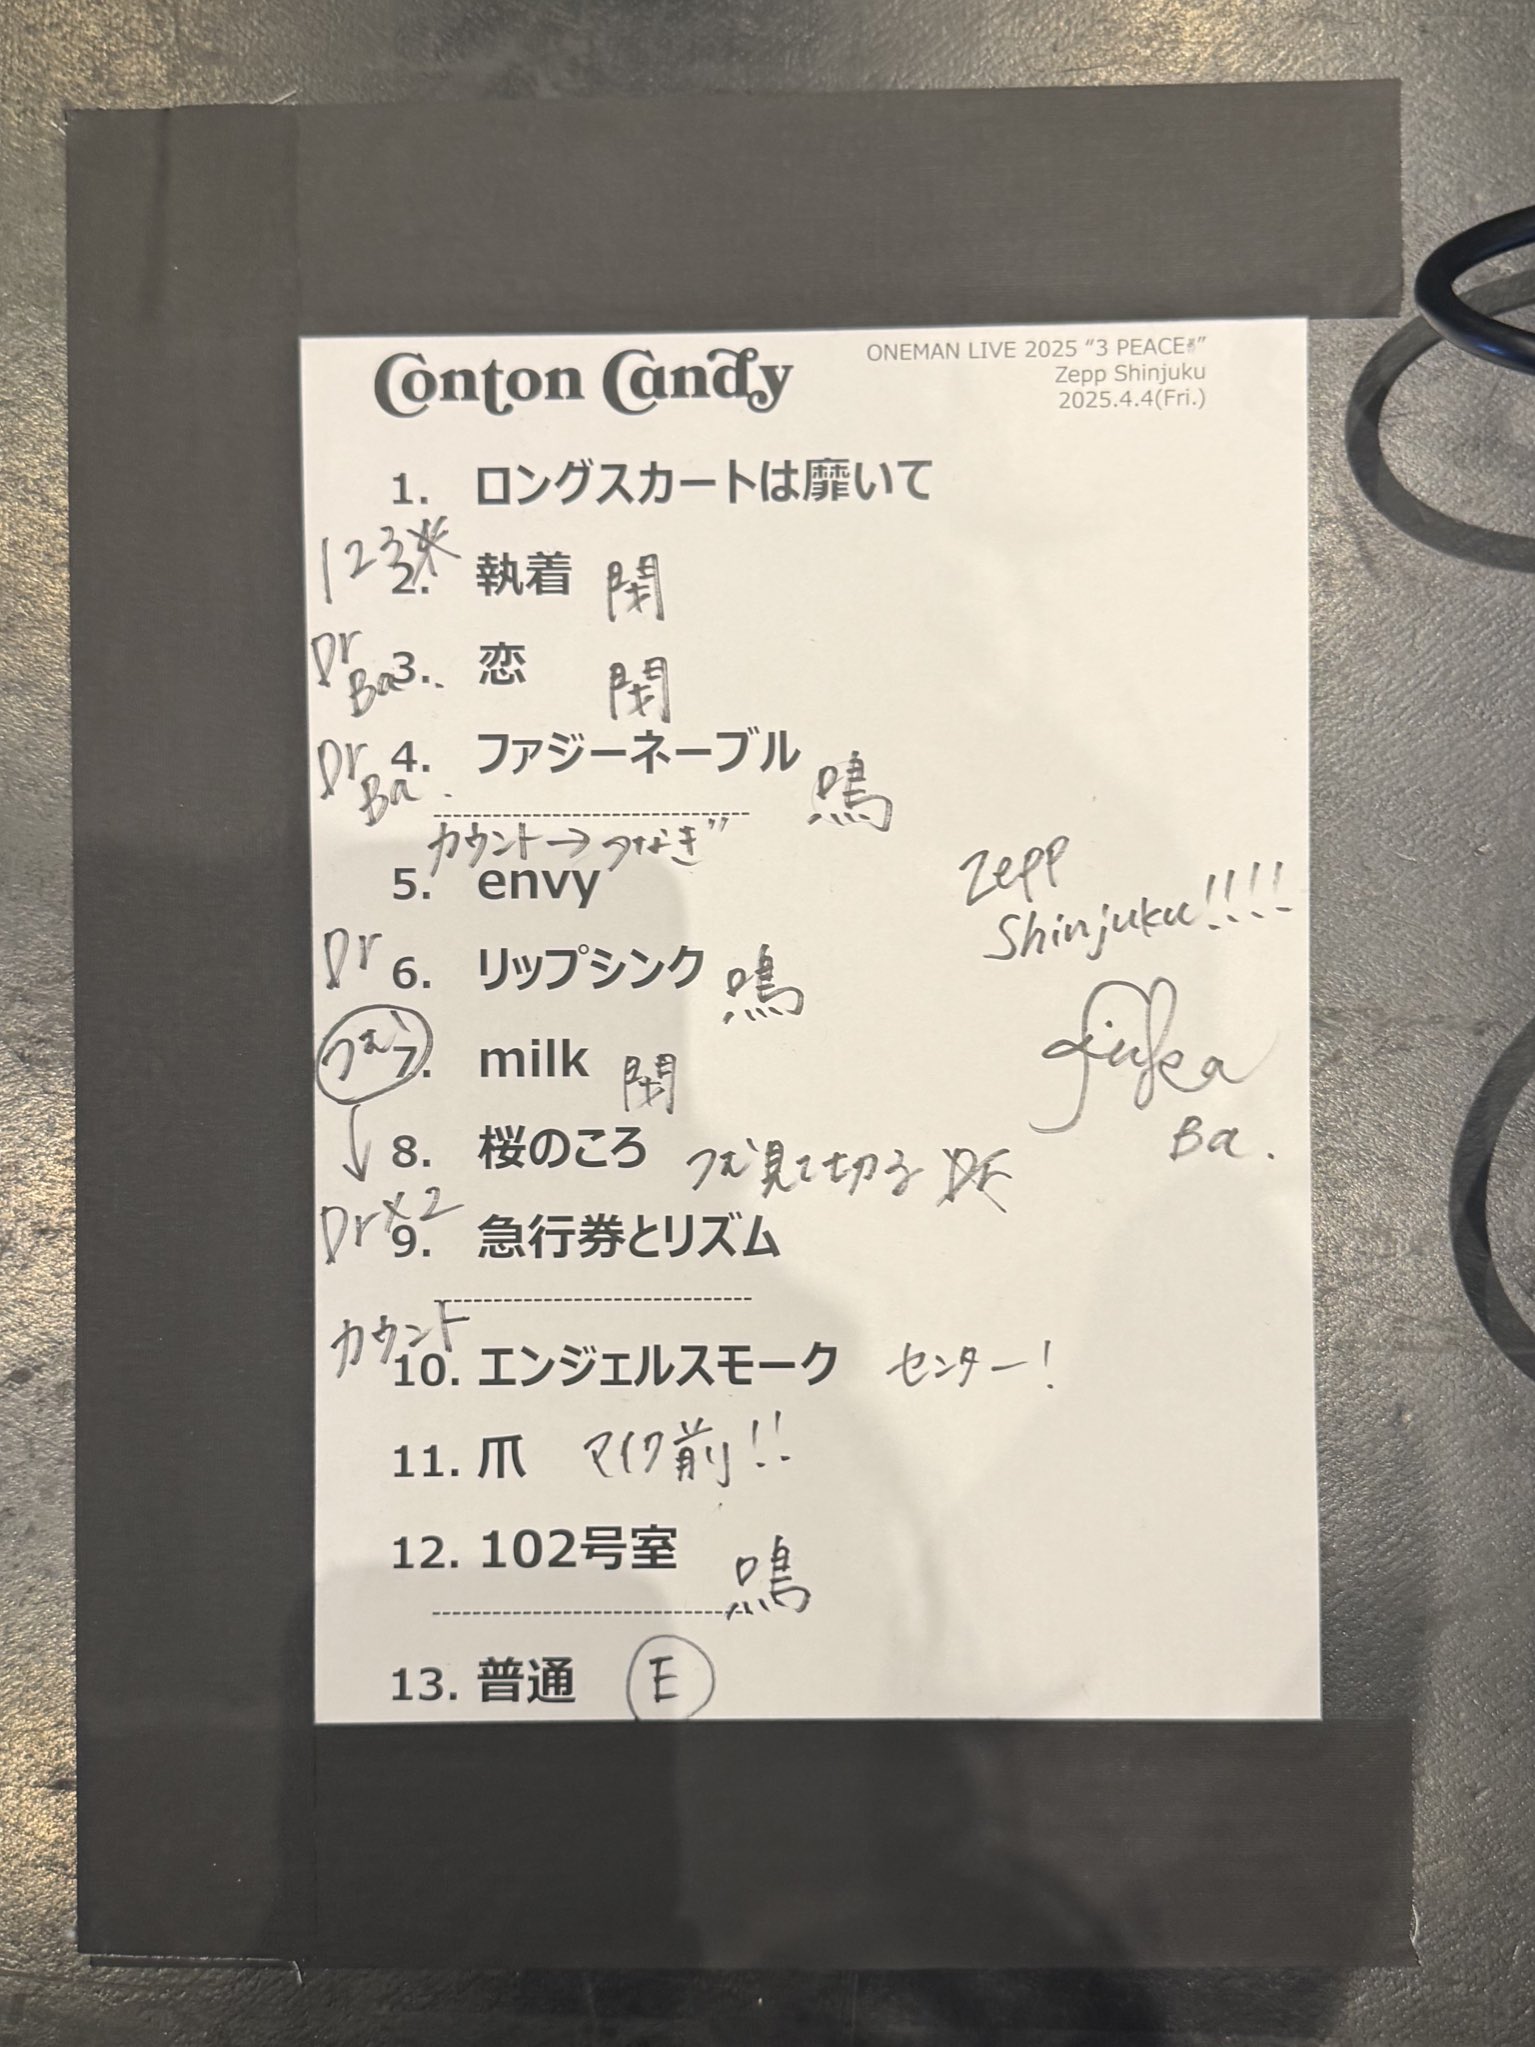 Conton Candy
ONEMAN LIVE 2025 “3 PEACE✌”
Zepp Shinjuku
2025.4.4(Fri.)
1. ロングスカートは靡いて
123
2. 執着
Dr
Ba.
3. 恋
Dr
Ba.
4. ファジーネーブル 鳴
カウント→つなぎ
5. envy
Zepp
Shinjuku!!!!
Dr
6. リップシンク 鳴
つむ
7. milk
↓
Ba.
8. 桜のころ つむ見て切る
Dr×2
9. 急行券とリズム
カウント
10. エンジェルスモーク センター!
11. 爪 マイク前!!
12. 102号室 鳴
13. 普通 E